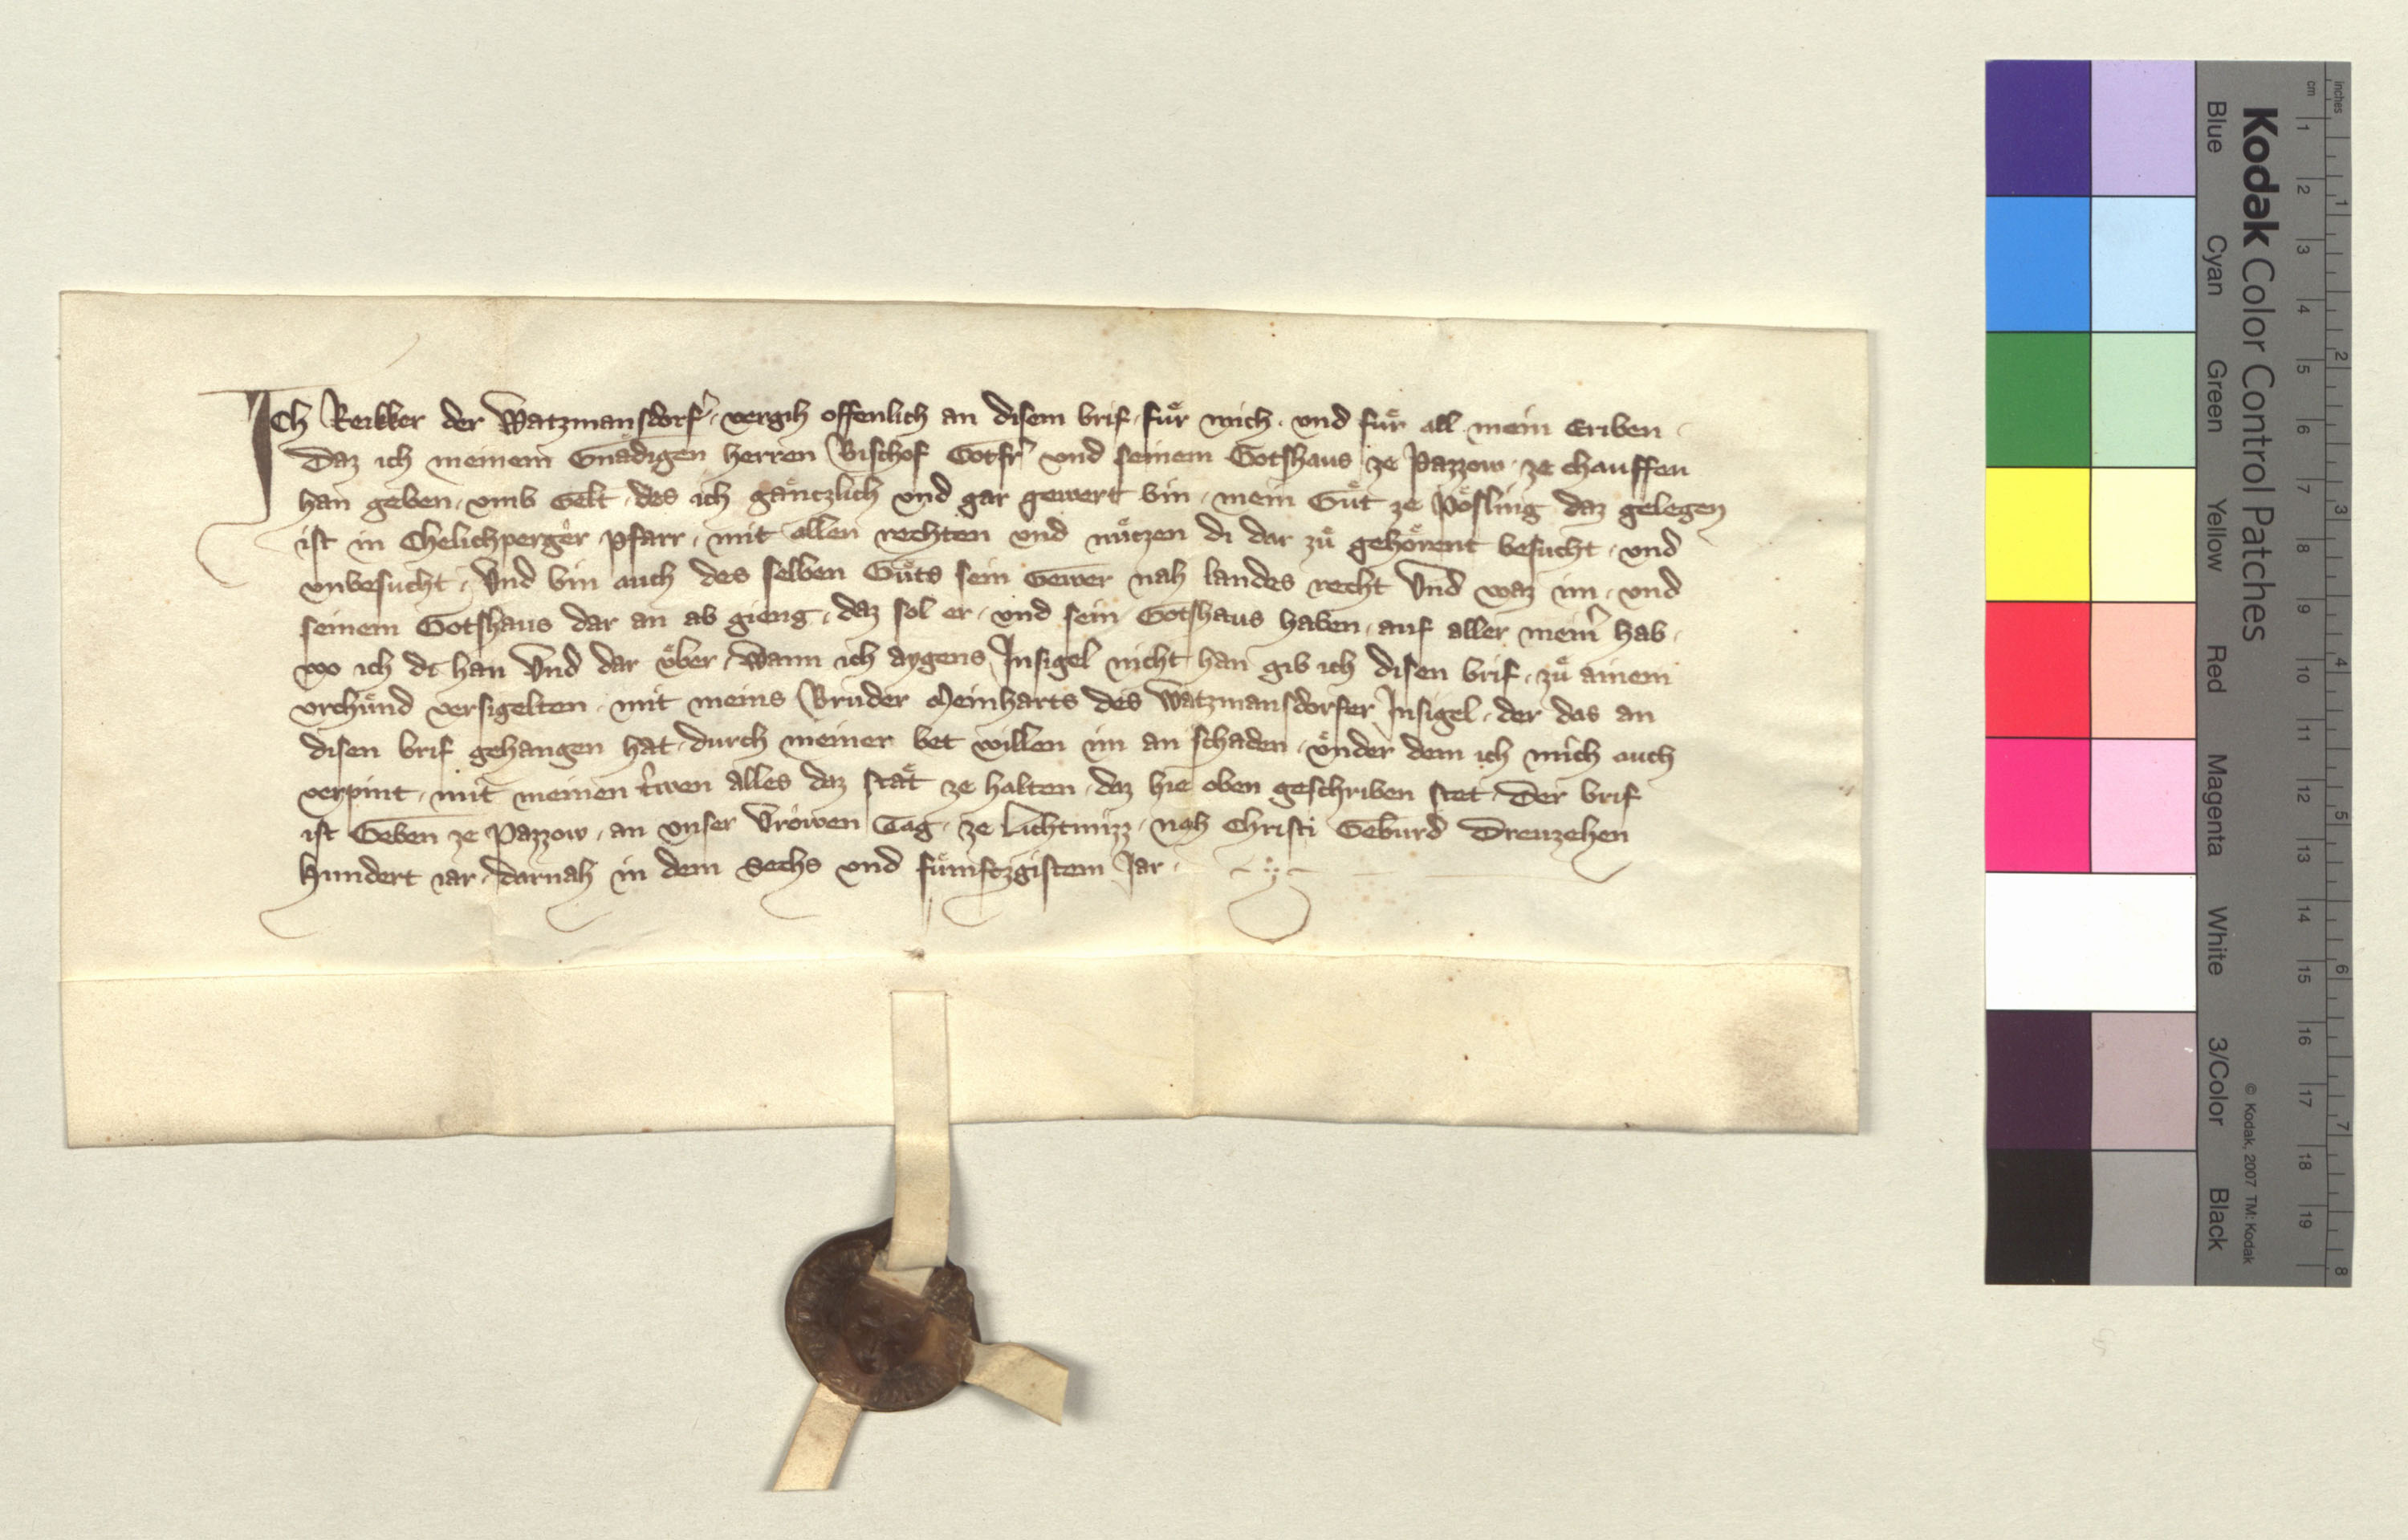 Ich Reikker der Watzmansdorf̾ · vergih offenlich an disem brif · fuͤr mich · vnd fuͤr all mein Eriben ·
Daz ich meinem Gnaͤdigen herren Bischof Gotfr̾ vnd seinem Gotshaus ze Pazzow · ze chauffen
han geben · vmb Gelt · des ich gaͤnczlich vnd gar gewert bin · mein Guͤt ze Poͤsling daz gelegen
ist in Chelichperger pfarr · mit allen rechten vnd nuͤtzen di dar zuͤ gehoͤrent besucht · vnd
vnbesucht · Vnd bin auch des selben Guͤts sein Gewer nah landes recht Vnd waz im · vnd
seinem Gotshaus dar an ab gieng · daz sol er · vnd sein Gotshaus haben · auf aller mein̾ hab ·
wo ich di han Vnd dar vͤber · Wann ich aygens Insigel nicht han gib ich disen brif · zuͤ ainem
vrchuͤnd versigelten · mit meins Bruder Meinharts des Watzmansdorfer Insigel · der das an
disen brif gehangen hat · durch meiner bet willen im an schaden · vͤnder dem ich mich auch
verpint · mit meinen t̾wen alles daz staͤt ze halten · daz hie oben geschriben stet · Der brif
ist Geben ze Pazzow · an vnser Vrowen Tag · ze Lichtmizz · nah Christi Geburd Dreuzehen
hundert iar · darnah in dem Sechs vnd fuͤmftzgistem Jar ·
Kodak Color Control Patches
© Kodak, 2007 TM: Kodak
Blue Cyan Green Yellow Red Magenta White 3/Color Black
cm 1 2 3 4 5 6 7 8 9 10 11 12 13 14 15 16 17 18 19
inches 1 2 3 4 5 6 7 8